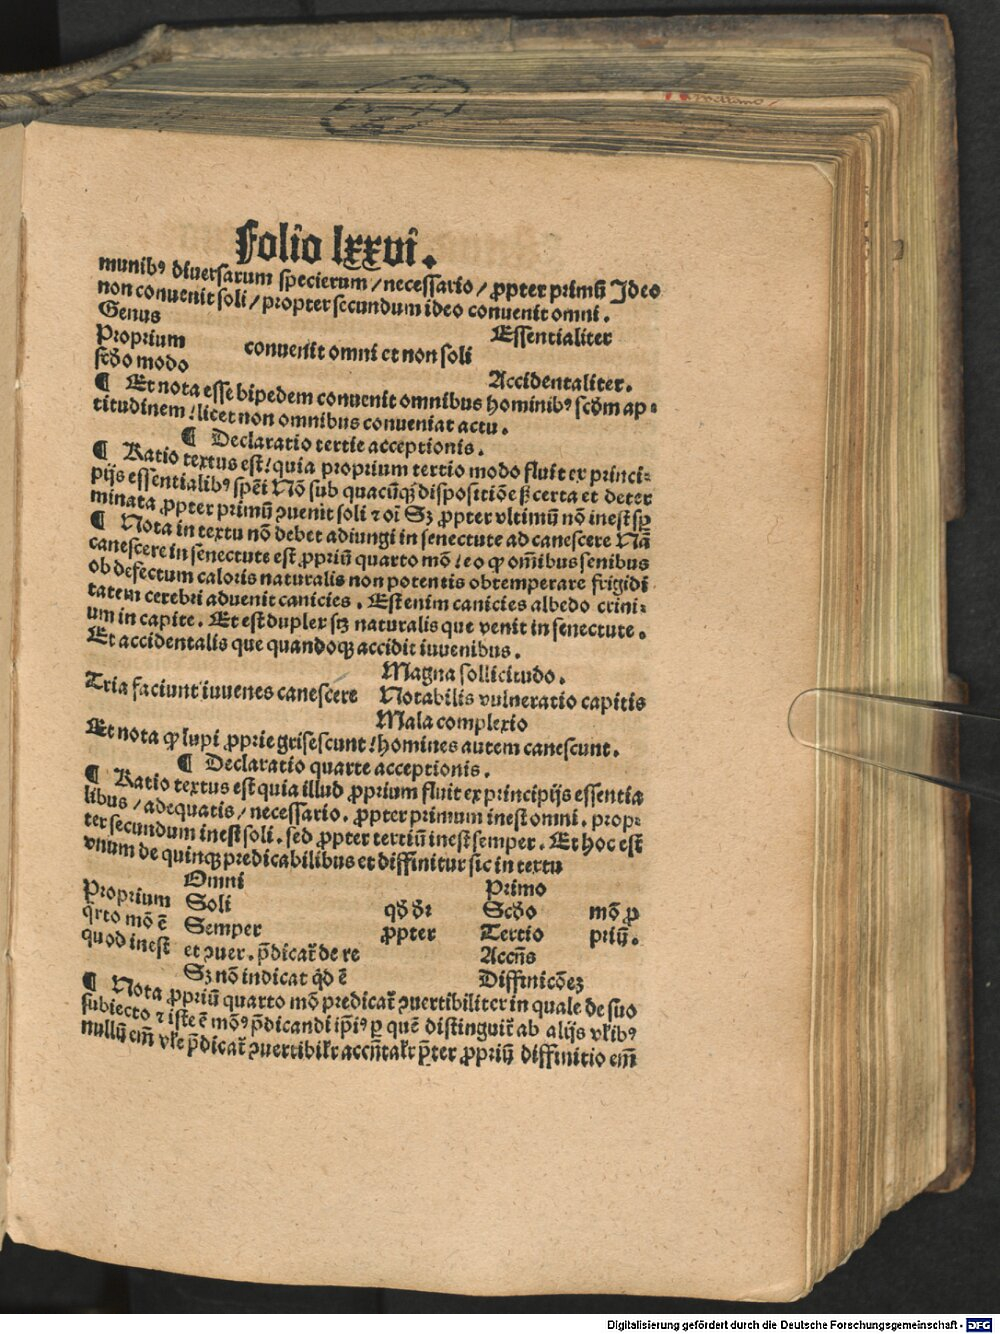 Folio lxxvi.
munibꝰ diversarum specierum / necessario / ꝓpter primū Ideo
non convenit soli / propter secundum ideo convenit omni.
Genus
Essentialiter
Proprium
convenit omni et non soli
scďo modo
Accidentaliter.
¶ Et nota esse bipedem convenit omnibus hominibꝰ scďm ap⸗
titudinem / licet non omnibus conveniat actu.
¶ Declaratio tertie acceptionis.
¶ Ratio textus est / quia proprium tertio modo fluit ex princi⸗
pijs essentialibꝰ spēi Nō sub quacūqꝫ dispositiōe sꝫ certa et deter
minata ꝓpter primū ꝯuenit soli ⁊ oī Sꝫ ꝓpter vltimū nō inest sꝑ
¶ Nota in textu nō debet adiungi in senectute ad canescere Nā
canescere in senectute est ꝓpriū quarto mō / eo ꝙ om̄ibus senibus
ob defectum caloris naturalis non potentis obtemperare frigidi
tatem cerebri aduenit canicies. Est enim canicies albedo crini⸗
um in capite. Et est duplex scꝫ naturalis que venit in senectute.
Et accidentalis que quandoqꝫ accidit iuvenibus.
Magna sollicitudo.
Tria faciunt iuvenes canescere Notabilis vulneratio capitis
Mala complexio
Et nota ꝙ lupi ꝓprie grisescunt / homines autem canescunt.
¶ Declaratio quarte acceptionis.
¶ Ratio textus est quia illud ꝓprium fluit ex principijs essentia
libus / adequatis / necessario. ꝓpter primum inest omni. prop⸗
ter secundum inest soli. sed ꝓpter tertiū inest semper. Et hoc est
vnum de quinqꝫ predicabilibus et diffinitur sic in textu
Omni
Primo
Proprium Soli
qď dr̄
Scďo mō ꝓ
q̄rto mō ē Semper
ꝓpter Tertio priū.
quod inest et ꝯuer. p̄dicat̄ de re
Accn̄s
Sꝫ nō indicat qď ē
Diffinicōeꝫ
¶ Nota ꝓpriū quarto mō predicat̄ ꝯuertibiliter in quale de suo
subiecto ⁊ iste ē mōꝰ p̄dicandi ip̄iꝰ ꝑ quē distinguit̄ ab alijs vl̄ibꝰ
nullū em̄ vl̄e p̄dicat̄ ꝯuertibilr̄ accn̄talr̄ p̄ter ꝓpriū diffinitio em̄
Digitalisierung gefördert durch die Deutsche Forschungsgemeinschaft - DFG